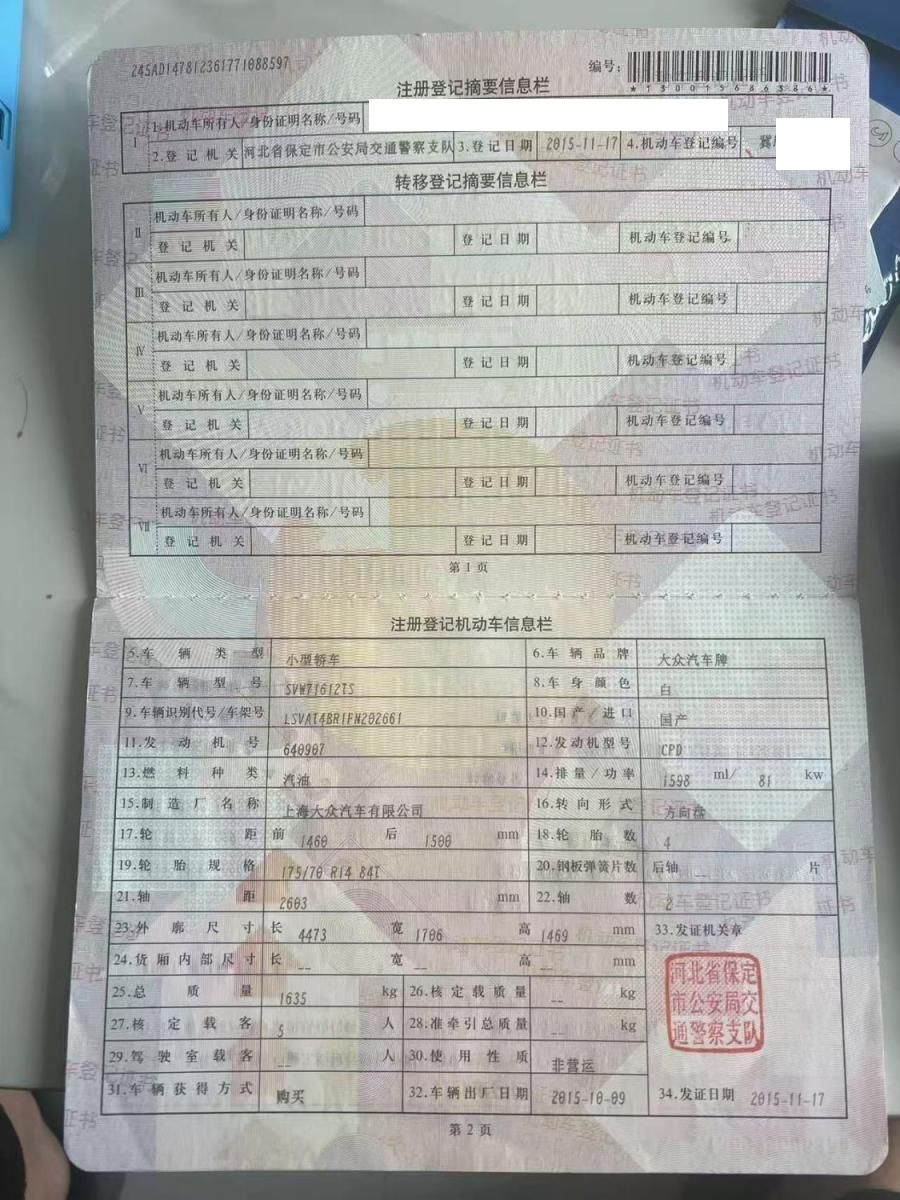 245AD1478123617710885​97
编号:
注册登记摘要信息栏
I 1.机动车所有人/身份证明名称/号码
2.登记机关 河北省保定市公安局交通警察支队 3.登记日期 2015-11-17 4.机动车登记编号 冀
转移登记摘要信息栏
II 机动车所有人/身份证明名称/号码
登记机关 登记日期 机动车登记编号
III 机动车所有人/身份证明名称/号码
登记机关 登记日期 机动车登记编号
IV 机动车所有人/身份证明名称/号码
登记机关 登记日期 机动车登记编号
V 机动车所有人/身份证明名称/号码
登记机关 登记日期 机动车登记编号
VI 机动车所有人/身份证明名称/号码
登记机关 登记日期 机动车登记编号
VII 机动车所有人/身份证明名称/号码
登记机关 登记日期 机动车登记编号
第 1 页
注册登记机动车信息栏
5.车辆类型 小型轿车 6.车辆品牌 大众汽车牌
7.车辆型号 SVW71612TS 8.车身颜色 白
9.车辆识别代号/车架号 LSVAT4BR1FN202661 10.国产/进口 国产
11.发动机号 640907 12.发动机型号 CPD
13.燃料种类 汽油 14.排量/功率 1598 ml/ 81 kw
15.制造厂名称 上海大众汽车有限公司 16.转向形式 方向盘
17.轮距 前 1460 后 1500 mm 18.轮胎数 4
19.轮胎规格 175/70 R14 84T 20.钢板弹簧片数 后轴 -- 片
21.轴距 2603 mm 22.轴数 2
23.外廓尺寸 长 4473 宽 1706 高 1469 mm 33.发证机关章
24.货厢内部尺寸 长 -- 宽 -- 高 -- mm
河北省保定
市公安局交
通警察支队
25.总质量 1635 kg 26.核定载质量 -- kg
27.核定载客 5 人 28.准牵引总质量 -- kg
29.驾驶室载客 -- 人 30.使用性质 非营运
31.车辆获得方式 购买 32.车辆出厂日期 2015-10-09 34.发证日期 2015-11-17
第 2 页